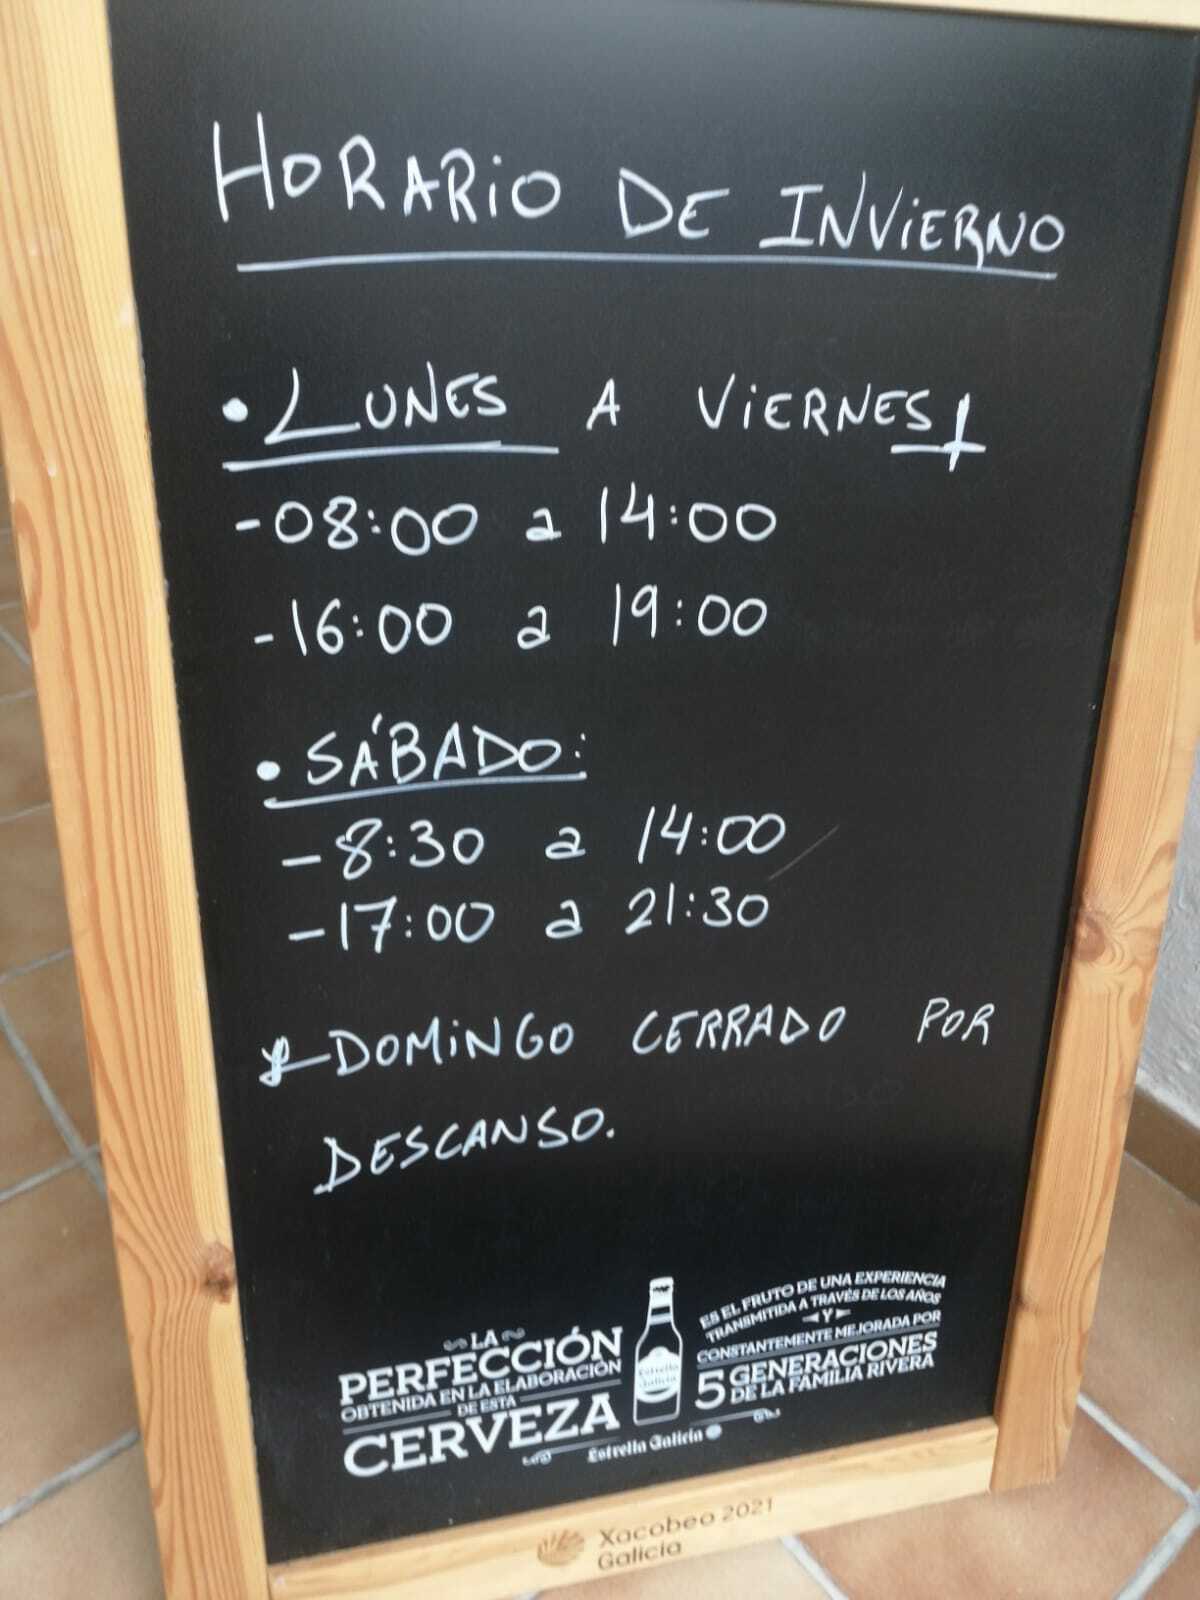 HORARIO DE INVIERNO
• LUNES A VIERNES
-08:00 a 14:00
-16:00 a 19:00
• SÁBADO:
-8:30 a 14:00
-17:00 a 21:30
DOMINGO CERRADO POR
DESCANSO.
LA
PERFECCIÓN
OBTENIDA EN LA ELABORACIÓN
DE ESTA
CERVEZA
Estrella
Galicia
ES EL FRUTO DE UNA EXPERIENCIA
TRANSMITIDA A TRAVÉS DE LOS AÑOS
Y
CONSTANTEMENTE MEJORADA POR
5 GENERACIONES
DE LA FAMILIA RIVERA
Estrella Galicia
Xacobeo 2021
Galicia